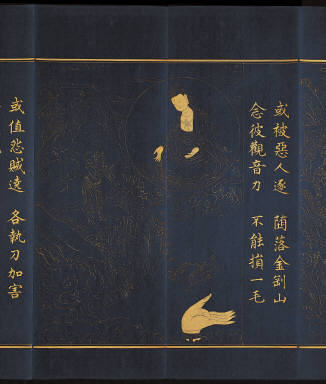 或被惡人逐　墮落金剛山
念彼觀音力　不能損一毛
或值怨賊遶　各執刀加害